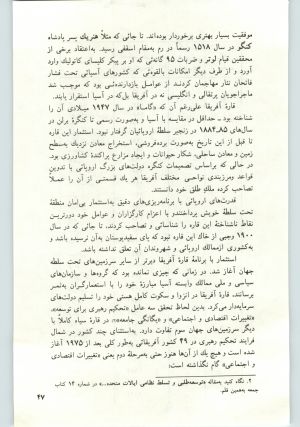 موفقیت بسیار بهتری برخوردار بوده‌اند. تا جائی که مثلاً هنریك پسر پادشاه
کنگو در سال ۱۵۱۸ رسماً در رم به‌مقام اسقفی رسید. به‌اعتقاد برخی از
محققین قیام لوتر و ضربات ۹۵ گانه‌ئی که او بر پیکر کلیسای کاتولیك وارد
آورد و از طرف دیگر امکانات بالقوه‌ئی که کشورهای آسیائی تحت فشار
فاتحان تتار مهاجمان کردند از عوامل بازدارنده‌ئی بود که موجب شد
ماجراجویان پرتقالی و انگلیسی نه در آفریقا بلکه در آسیا استقرار یابند.
قارهٔ آفریقا علی‌رغم آن که «گاه‌ها» در سال ۱۹۴۷ میلادی آن را
شناخته بود ـ حداقل در مقایسه با آسیا و به‌صورت رسمی تا کنگرهٔ برلن در
سال‌های ۸۵ـ۱۸۸۴ در زنجیر سلطهٔ اروپائیان گرفتار نشد. استثمار این قاره
تا قبل از این تاریخ به‌صورت برده‌فروشی، استخراج معادن نزدیك به‌سطح
زمین و معادن ساحلی، شکار حیوانات و ایجاد مزارع پراکندهٔ کشاورزی بود.
در حالی که براساس تصمیمات کنگره دولت‌های بزرگ اروپائی با تدوین
قواعد ومرزبندی نواحی مختلف آفریقا هر یك قسمتی از آن را عملاً
تصاحب کرده ملكِ طلق خود دانستند.
قدرت‌های اروپائی با برنامه‌ریزی‌های دقیق به‌استثمار بی‌امان منطقهٔ
تحت سلطهٔ خویش پرداختند و با اعزام کارگزاران و عوامل خود دورترین
نقاط ناشناختهٔ این قاره را شناسائی و تصاحب کردند. تا جائی که در سال
۱۹۰۰ وجبی از خاك این قاره نبود که پای سفیدپوستان به‌آن نرسیده باشد و
به‌کشوری از ممالك اروپائی و شهروندان آن تعلق نداشته باشد.
استثمار با برنامهٔ قارهٔ آفریقا دیرتر از سایر سرزمین‌های تحت سلطه
جهان آغاز شد. در زمانی که چیزی نمانده بود که گروه‌ها و سازمان‌های
سیاسی و ملی ممالك وابسته آسیا مبارزهٔ خود را با استعمارگران به‌ثمر
برسانند، قارهٔ آفریقا در انزوا و سکوت کامل هستی خود را تسلیم دولت‌های
سرمایه‌دار می‌کرد. بدین لحاظ تحقق سه عامل «تحکیم رهبری برای توسعه»،
«تغییرات اقتصادی و اجتماعی» و «یگانگی جامعه» در قارهٔ سیاه کاملاً با
دیگر سرزمین‌های جهان سوم تفاوت دارد. به‌استثنای چند کشور در شمال
فرایند تحکیم رهبری در ۴۹ کشور آفریقائی به‌طور کلی بعد از ۱۹۷۵ آغاز
شده است و هیچ یك از آن‌ها هنوز حتی به‌مرحلهٔ دوم یعنی «تغییرات اقتصادی و
اجتماعی» گام نگذاشته است:
۲. نگاه کنید به‌مقاله «توسعه‌طلبی و تسلط نظامی ایالات متحده...» در شماره ۱۴ کتاب
جمعه به‌همین قلم.
۴۷